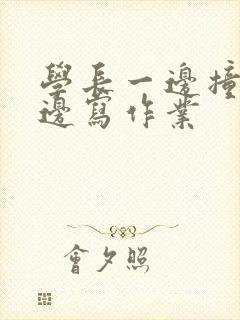 學長一邊撞
邊寫作業
會夕照